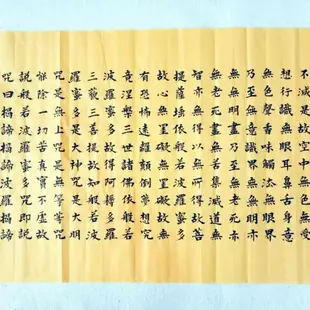 不滅是故空中無色無受
想行識無眼耳鼻舌身意
無色聲香味觸法無眼界
乃至無意識界無無明亦
無無明盡乃至無老死亦
無老死盡無苦集滅道無
智亦無得以無所得故菩
提薩埵依般若波羅蜜多
故心無罣礙無罣礙故無
有恐怖遠離顛倒夢想究
竟涅槃三世諸佛依般若
波羅蜜多故得阿耨多羅
三藐三菩提故知般若波
羅蜜多是大神咒是大明
咒是無上咒是無等等咒
能除一切苦真實不虛故
說般若波羅蜜多咒即說
咒曰揭諦揭諦波羅揭諦